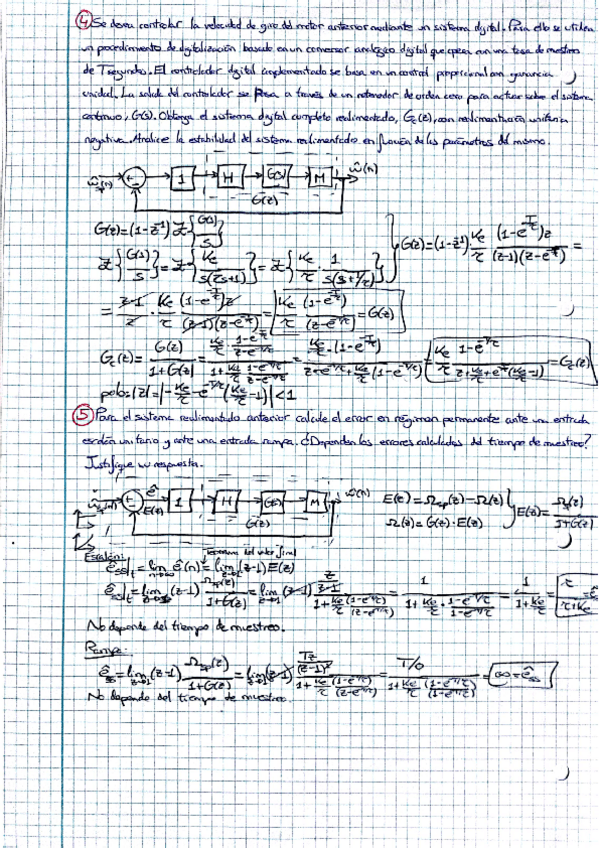 ④ Se desea controlar la velocidad de giro del motor anterior mediante un sistema digital. Para ello se utiliza
un procedimiento de digitalización basado en un conversor analógico digital que opera con una tasa de muestreo
de T segundos. El controlador digital implementado se basa en un control proporcional con ganancia
unidad. La salida del controlador se pasa a través de un retenedor de orden cero para actuar sobre el sistema
continuo, G(s). Obtenga el sistema digital completo realimentado, G₂(z), con realimentación unitaria
negativa. Analice la estabilidad del sistema realimentado en función de los parámetros del mismo.
1 H G(s) M ŵ(n)
G(z)
G(z)=(1-z⁻¹) Z{G(s)/s}
Z{G(s)/s} = Z{Ke/s(τs+1)} = Z{Ke/τ · 1/s(s+1/τ)} G(z)=(1-z⁻¹) Ke/τ (1-e^(-T/τ))z/(z-1)(z-e^(-T/τ)) =
= z-1/z · Ke/τ (1-e^(-T/τ))z/(z-1)(z-e^(-T/τ)) = Ke/τ (1-e^(-T/τ))/(z-e^(-T/τ)) = G(z)
G₂(z) = G(z)/1+G(z) = Ke/τ · 1-e^(-T/τ)/z-e^(-T/τ) / 1+Ke/τ 1-e^(-T/τ)/z-e^(-T/τ) = Ke/τ · (1-e^(-T/τ)) / z-e^(-T/τ)+Ke/τ(1-e^(-T/τ)) = Ke/τ 1-e^(-T/τ) / z+Ke/τ+e^(-T/τ)(Ke/τ-1) = G₂(z)
polos |z| = |-Ke/τ-e^(-T/τ)(Ke/τ-1)| < 1
⑤ Para el sistema realimentado anterior calcule el error en régimen permanente ante una entrada
escalón unitario y ante una entrada rampa. ¿Dependen los errores calculados del tiempo de muestreo?
Justifique su respuesta.
ê E(z) 1 H G(s) M ŵ(n) E(z) = Ωsp(z) - Ω(z)
G(z) Ω(z) = G(z)·E(z) E(z) = Ωsp(z)/1+G(z)
Escalón: Teorema del valor final
ê_ss = lim n→∞ ê(n) = lim z→1 (z-1) E(z)
ê_ss = lim z→1 (z-1) Ωsp(z)/1+G(z) = lim z→1 (z-1) z/z-1 / 1+Ke/τ (1-e^(-T/τ))/(z-e^(-T/τ)) = 1/1+Ke/τ · 1-e^(-T/τ)/1-e^(-T/τ) = 1/1+Ke/τ = τ/τ+Ke = ê
No depende del tiempo de muestreo.
Rampa:
ê_ss = lim z→1 (z-1) Ωsp(z)/1+G(z) = lim z→1 (z-1) Tz/(z-1)² / 1+Ke/τ (1-e^(-T/τ))/(z-e^(-T/τ)) = T/0 / 1+Ke/τ (1-e^(-T/τ))/(1-e^(-T/τ)) = ∞ = ê_ss
No depende del tiempo de muestreo